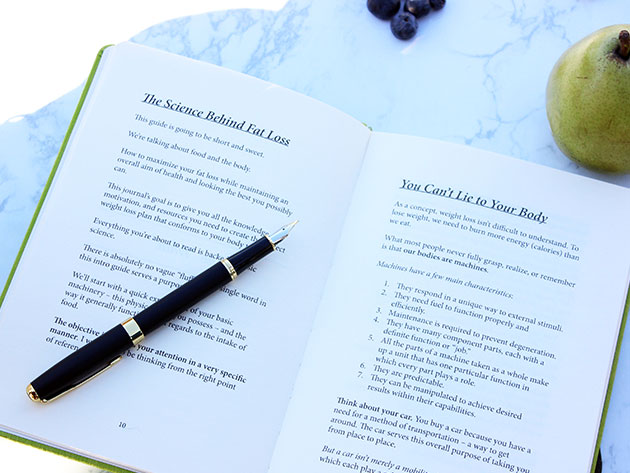 The Science Behind Fat Loss
This guide is going to be short and sweet.
We're talking about food and the body.
How to maximize your fat loss while maintaining an
overall aim of health and looking the best you possibly
can.
This journal's goal is to give you all the knowledge,
motivation, and resources you need to create the
weight loss plan that conforms to your body
Everything you're about to read is backed
science.
There is absolutely no vague "fluff single word in
this intro guide serves a purpose
We'll start with a quick exp of your basic
machinery – this physi you possess – and the
way it generally func regards to the intake of
food.
The objective your attention in a very specific
manner. I w be thinking from the right point
of refere
10
You Can't Lie to Your Body
As a concept, weight loss isn't difficult to understand. To
lose weight, we need to burn more energy (calories) than
we eat.
What most people never fully grasp, realize, or remember
is that our bodies are machines.
Machines have a few main characteristics:
1. They respond in a unique way to external stimuli.
2. They need fuel to function properly and
efficiently.
3. Maintenance is required to prevent degeneration.
4. They have many component parts, each with a
definite function or "job."
5. All the parts of a machine taken as a whole make
up a unit that has one particular function in
which every part plays a role.
6. They are predictable.
7. They can be manipulated to achieve desired
results within their capabilities.
Think about your car. You buy a car because you have a
need for a method of transportation – a way to get
around. The car serves this overall purpose of taking you
from place to place.
But a car isn't merely a mobility
which each play a